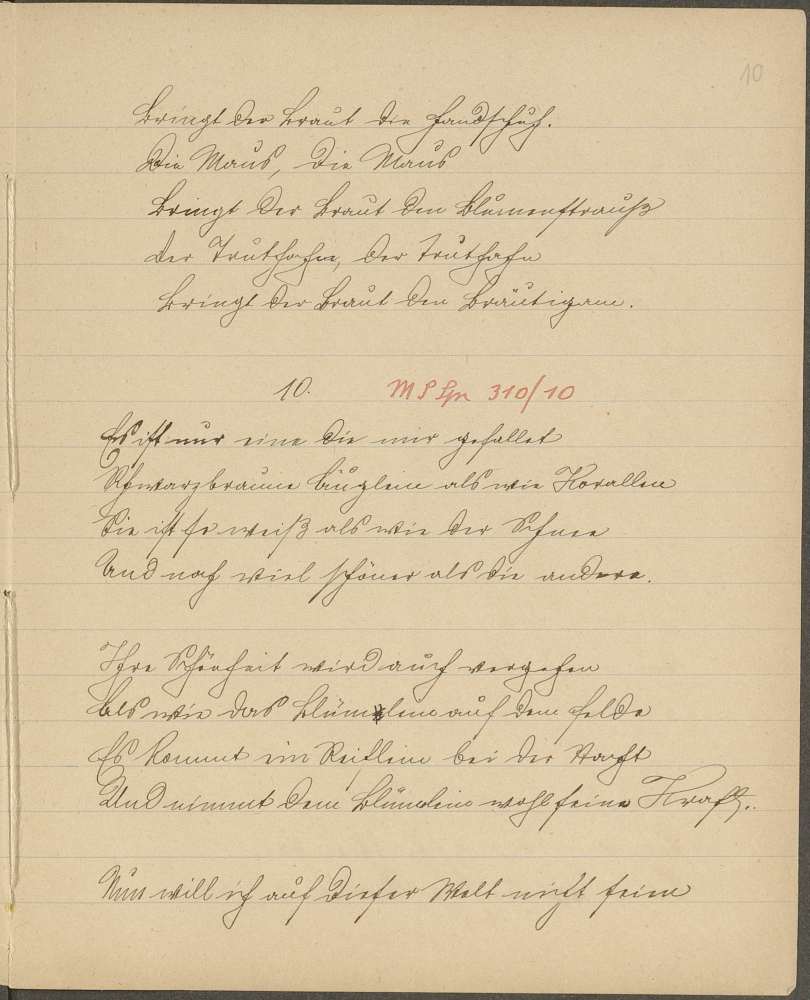 10
Bringt der Braut die Handschuh.
Die Maus, die Maus
Bringt der Braut den Blumenstrauß
Der Truthahn, der Truthahn
Bringt der Braut den Bräutigam.
10. 310/10
Es ist nur eine die mir gefallet
Schwarzbraune Äuglein als wie Korallen
Sie ist so weiß als wie der Schnee
Und noch viel schöner als die andere.
Ihre Schönheit wird auch vergehen
Als wie das Blümlein auf dem Felde
Es kommt ein Reiflein bei der Nacht
Und nimmt dem Blümlein wohl seine Kraft.
Nun will ich auf dieser Welt nicht sein